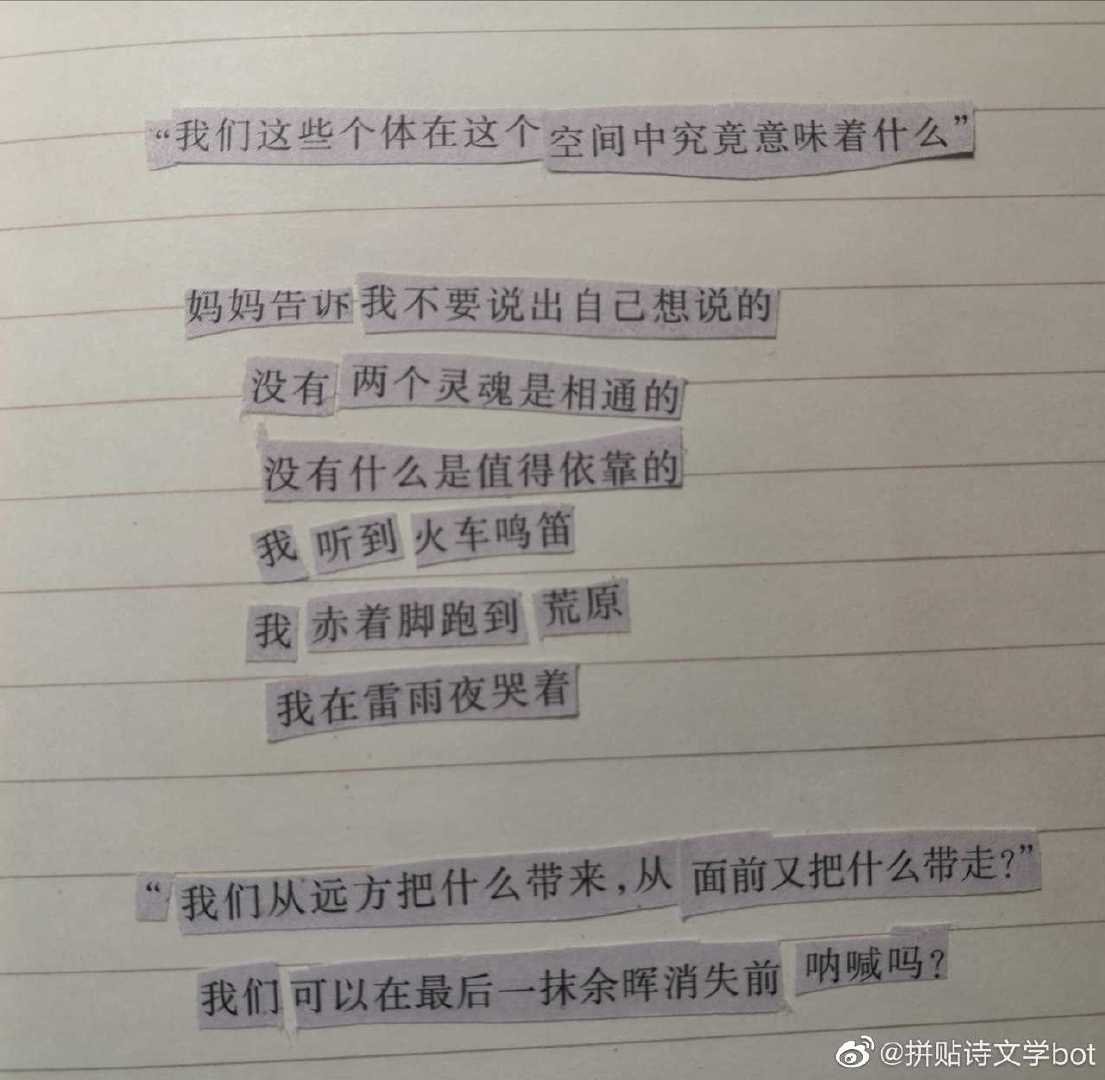 “我们这些个体在这个空间中究竟意味着什么”
妈妈告诉我不要说出自己想说的
没有两个灵魂是相通的
没有什么是值得依靠的
我听到火车鸣笛
我赤着脚跑到荒原
我在雷雨夜哭着
“我们从远方把什么带来,从面前又把什么带走?”
我们可以在最后一抹余晖消失前呐喊吗?
@拼贴诗文学bot